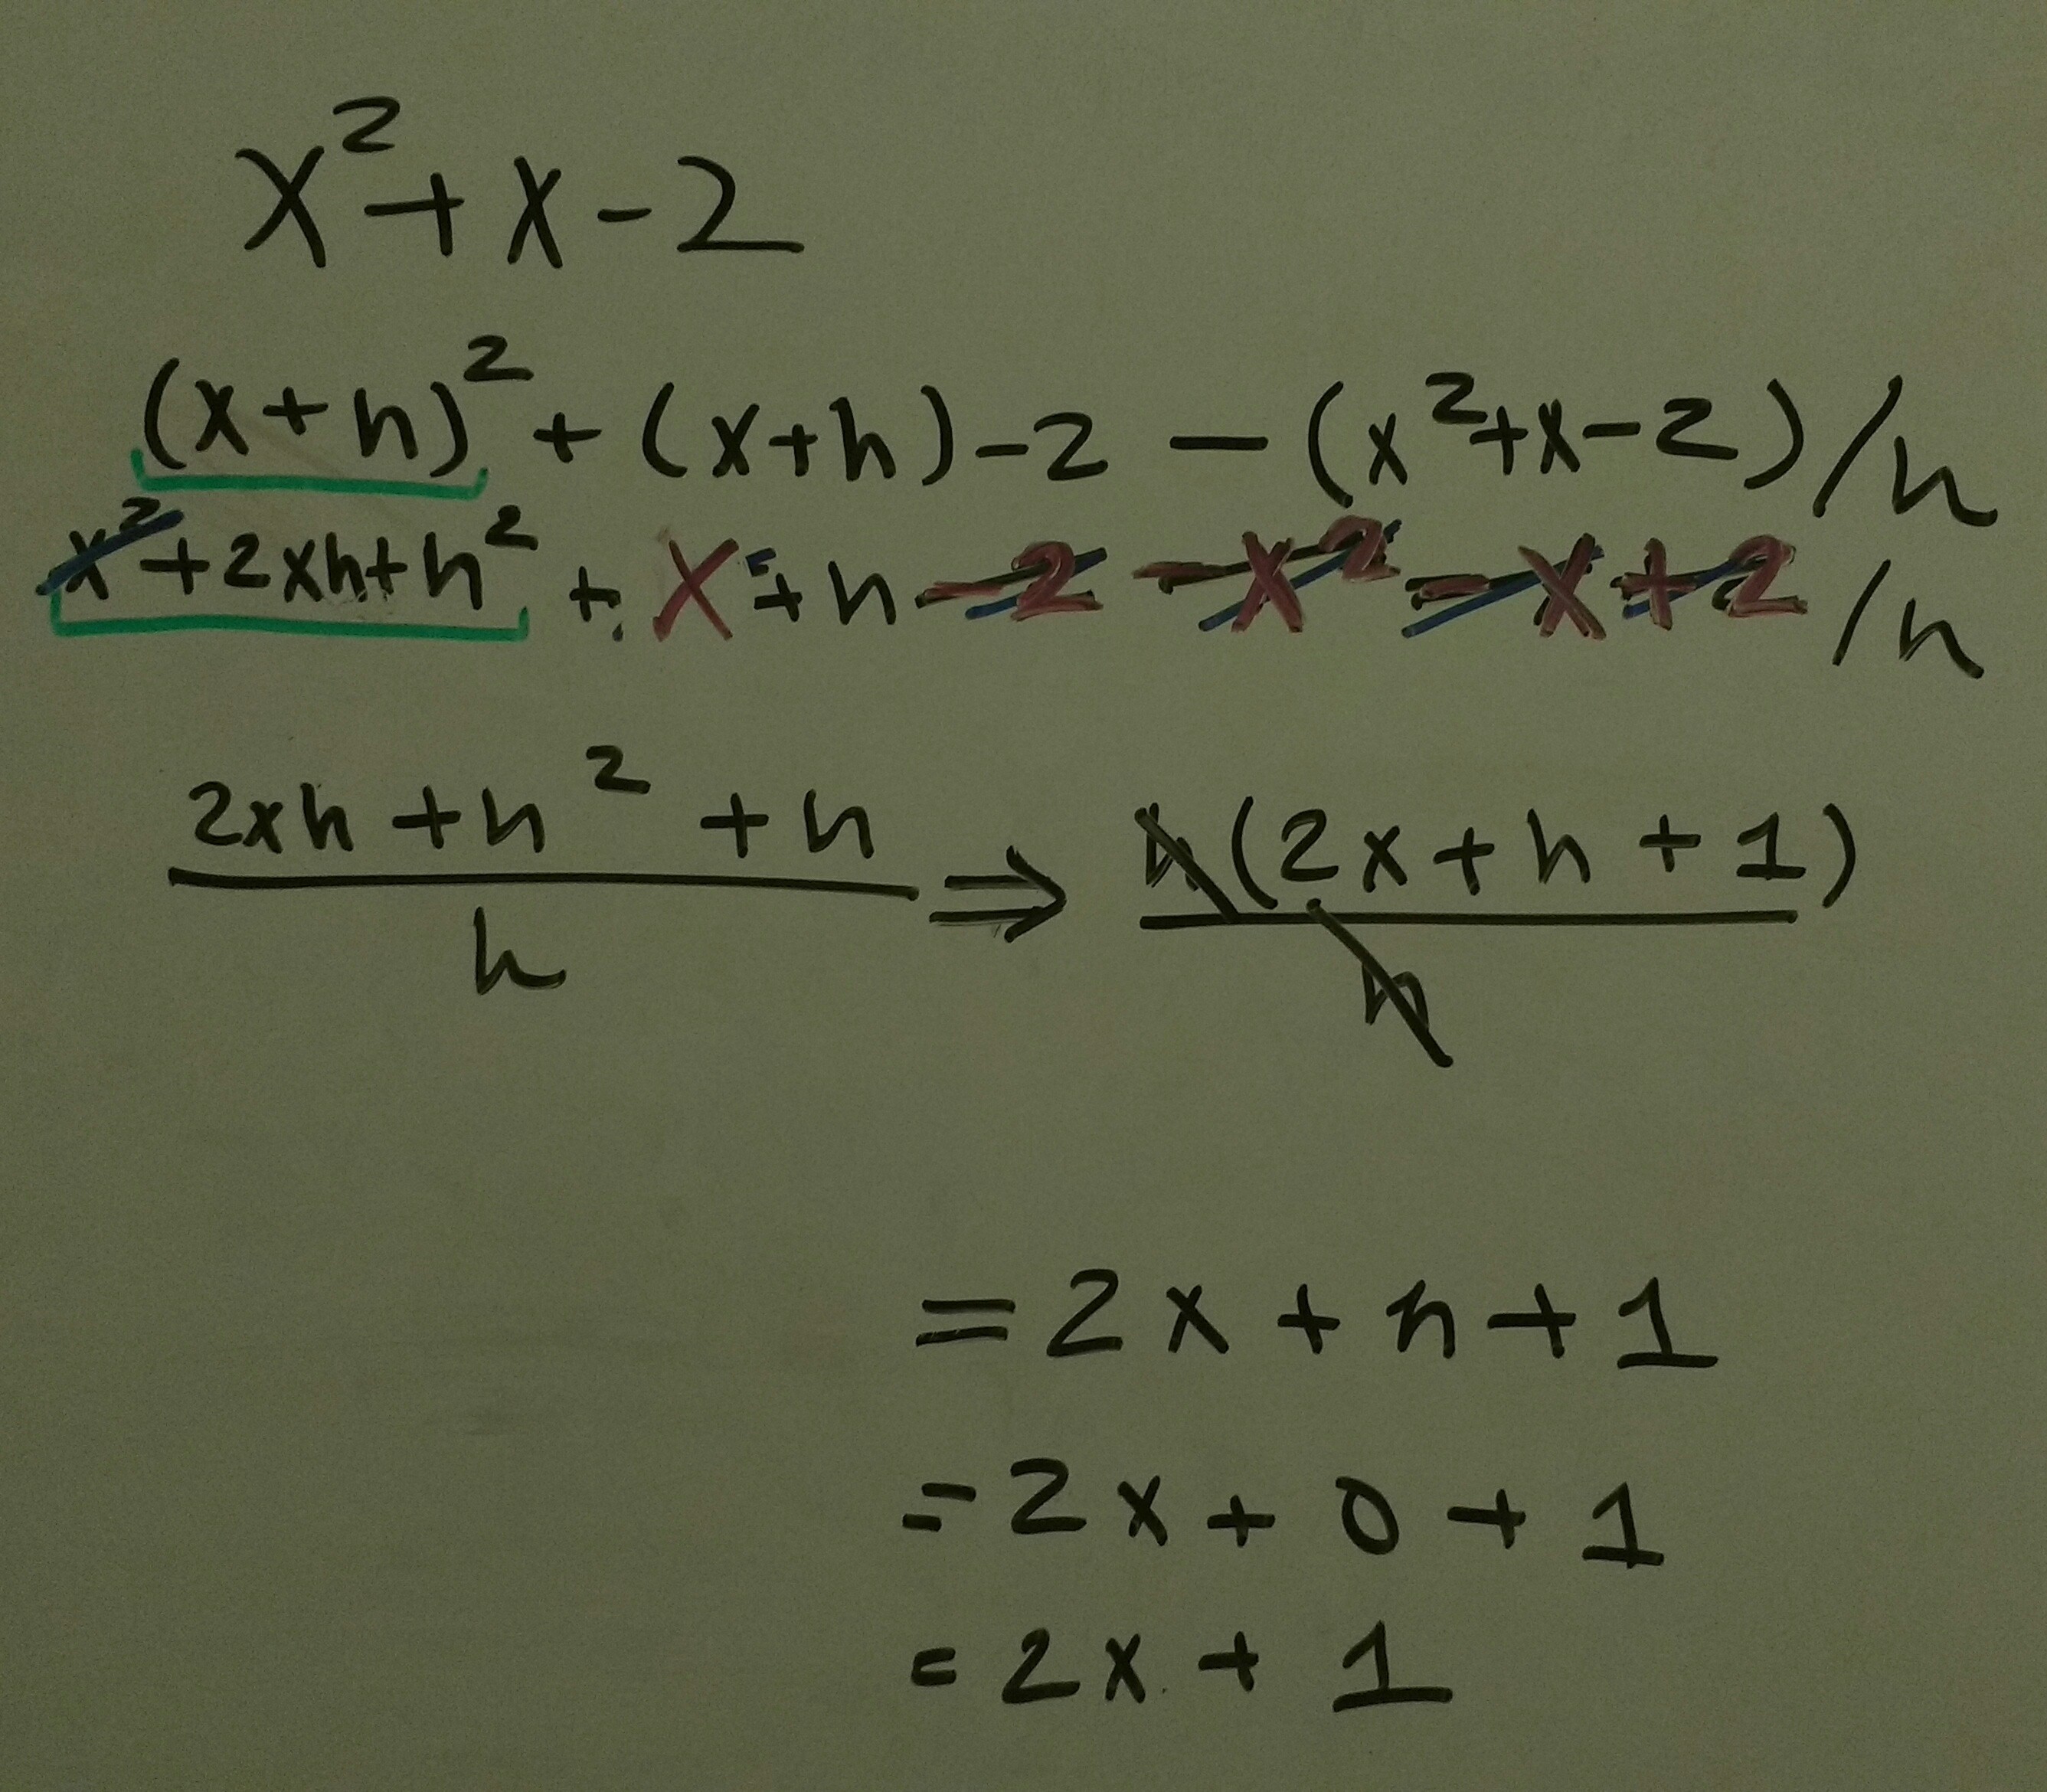 x² + x - 2
(x + h)² + (x + h) - 2 - (x² + x - 2) / h
x² + 2xh + h² + x + h - 2 - x² - x + 2 / h
2xh + h² + h / h ⇒ h(2x + h + 1) / h
= 2x + h + 1
= 2x + 0 + 1
= 2x + 1